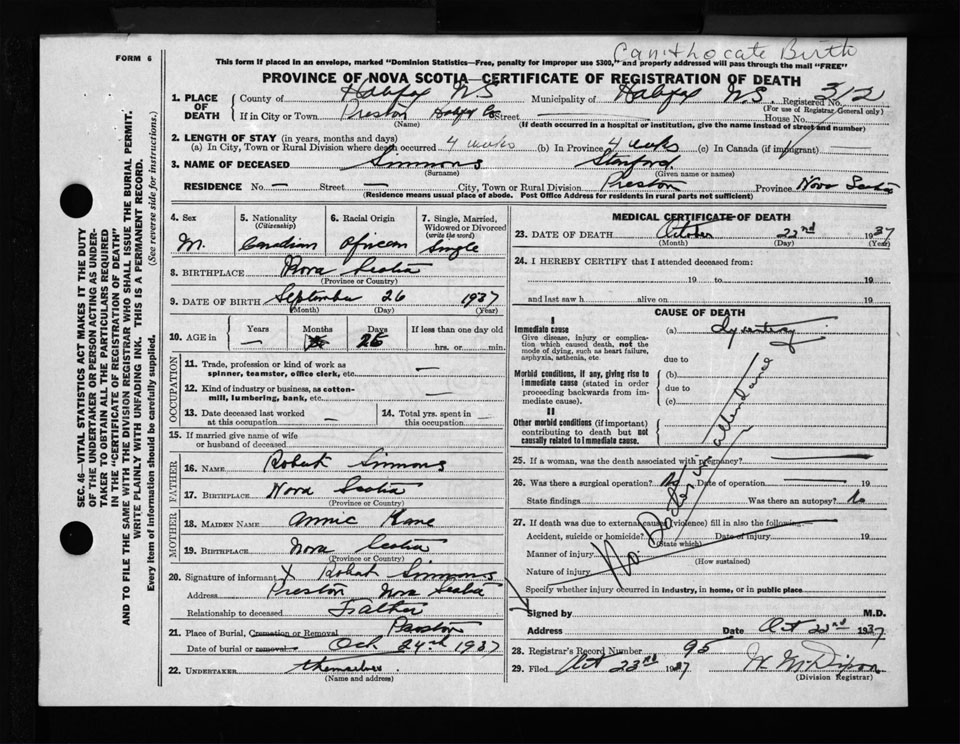 Can't Locate Birth
FORM 6
This form if placed in an envelope, marked "Dominion Statistics—Free, penalty for improper use $300," and properly addressed will pass through the mail "FREE"
PROVINCE OF NOVA SCOTIA—CERTIFICATE OF REGISTRATION OF DEATH
1. PLACE OF DEATH { County of Halifax N S Municipality of Halifax N.S. Registered No. 312
(For use of Registrar General only)
If in City or Town Preston Halifax Co Street — House No.
(Name) (If death occurred in a hospital or institution, give the name instead of street and number)
2. LENGTH OF STAY (in years, months and days)
(a) In City, Town or Rural Division where death occurred 4 weeks (b) In Province 4 weeks (c) In Canada (if immigrant) —
3. NAME OF DECEASED Simmons Stanford
(Surname) (Given name or names)
RESIDENCE No. — Street — City, Town or Rural Division Preston Province Nova Scotia
(Residence means usual place of abode. Post Office Address for residents in rural parts not sufficient)
SEC. 46—VITAL STATISTICS ACT MAKES IT THE DUTY
OF THE UNDERTAKER OR PERSON ACTING AS UNDER-
TAKER TO OBTAIN ALL THE PARTICULARS REQUIRED
IN THE "CERTIFICATE OF REGISTRATION OF DEATH"
AND TO FILE THE SAME WITH THE DIVISION REGISTRAR WHO SHALL ISSUE THE BURIAL PERMIT.
WRITE PLAINLY WITH UNFADING INK. THIS IS A PERMANENT RECORD.
Every item of information should be carefully supplied. (See reverse side for instructions.)
4. Sex
M.
5. Nationality
(Citizenship)
Canadian
6. Racial Origin
African
7. Single, Married,
Widowed or Divorced
(write the word)
Single
8. BIRTHPLACE Nova Scotia
(Province or Country)
9. DATE OF BIRTH September 26 1937
(Month) (Day) (Year)
10. AGE in { Years — Months Days 25 If less than one day old
hrs. or min.
OCCUPATION
11. Trade, profession or kind of work as
spinner, teamster, office clerk, etc. —
12. Kind of industry or business, as cotton-
mill, lumbering, bank, etc. —
13. Date deceased last worked
at this occupation —
14. Total yrs. spent in
this occupation —
15. If married give name of wife
or husband of deceased
FATHER
16. NAME Robert Simmons
17. BIRTHPLACE Nova Scotia
(Province or Country)
MOTHER
18. MAIDEN NAME Annie Kane
19. BIRTHPLACE Nova Scotia
(Province or Country)
20. Signature of informant X Robert Simmons
Address Preston Nova Scotia
Relationship to deceased Father
21. Place of Burial, Cremation or Removal Preston
Date of burial or removal Oct 24th 1937
22. UNDERTAKER themselves
(Name and address)
MEDICAL CERTIFICATE OF DEATH
23. DATE OF DEATH October 22nd 1937
(Month) (Day) (Year)
24. I HEREBY CERTIFY that I attended deceased from:
19 to 19
and last saw h alive on 19
CAUSE OF DEATH
I
Immediate cause
Give disease, injury or complica-
tion which caused death, not the
mode of dying, such as heart failure,
asphyxia, asthenia, etc.
(a) Dysentery
due to
Morbid conditions, if any, giving rise to
immediate cause (stated in order
proceeding backwards from im-
mediate cause).
(b)
due to
(c)
II
Other morbid conditions (if important)
contributing to death but not
causally related to immediate cause.
No. Doctor in attendance
25. If a woman, was the death associated with pregnancy? —
26. Was there a surgical operation? No Date of operation —
State findings Was there an autopsy? No
27. If death was due to external causes (violence) fill in also the following—
Accident, suicide or homicide? Date of injury 19
(State which)
Manner of injury
(How sustained)
Nature of injury
Specify whether injury occurred in industry, in home, or in public place
Signed by M.D.
Address Date Oct 22nd 1937
28. Registrar's Record Number 95
29. Filed Oct 23rd 1937
(Division Registrar)